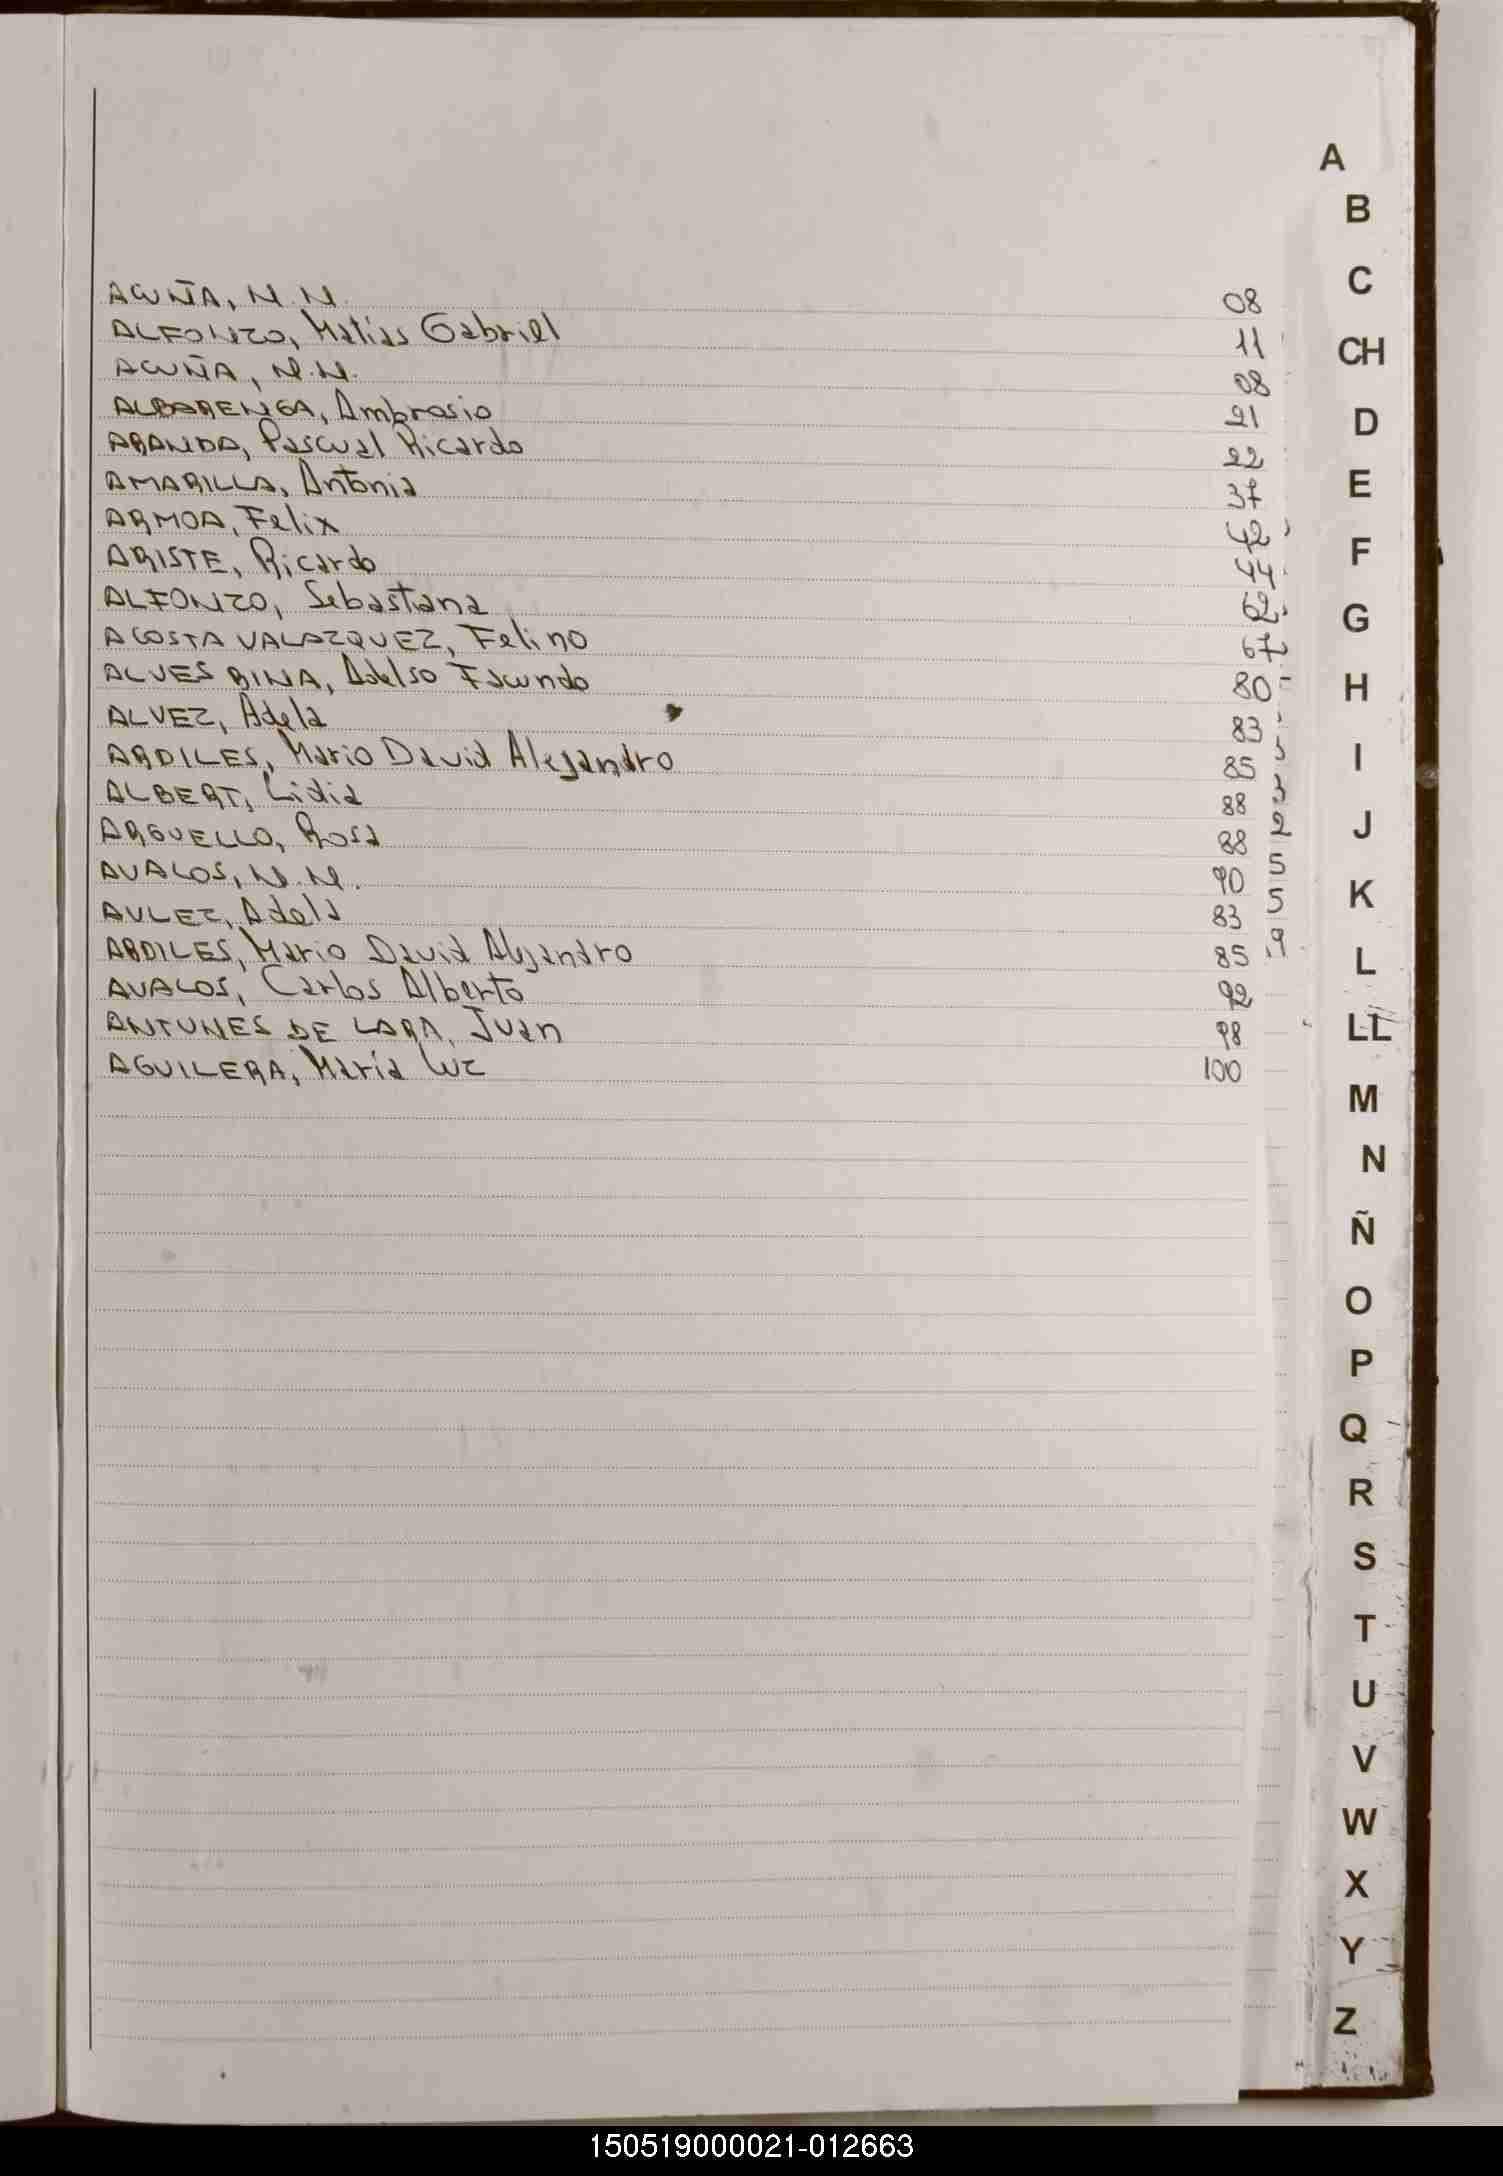 ACUÑA, N.N. 08
ALFONZO, Matías Gabriel 11
ACUÑA, N.N. 08
ALBARENGA, Ambrosio 21
ARANDA, Pascual Ricardo 22
AMARILLA, Antonia 37
ARMOA, Felix 42
ARISTE, Ricardo 44
ALFONZO, Sebastiana 62
ACOSTA VALAZQUEZ, Felino 67
ALVES BINA, Adelso Facundo 80
ALVEZ, Adela 83
ARDILES, Mario David Alejandro 85
ALBERT, Lidia 88 3
ARGUELLO, Rosa 88 2
AVALOS, N.N. 90 5
AVLEZ, Adela 83 5
ARDILES, Mario David Alejandro 85 9
AVALOS, Carlos Alberto 92
ANTUNES DE LARA, Juan 98
AGUILERA, María Luz 100
A
B
C
CH
D
E
F
G
H
I
J
K
L
LL
M
N
Ñ
O
P
Q
R
S
T
U
V
W
X
Y
Z
150519000021-012663